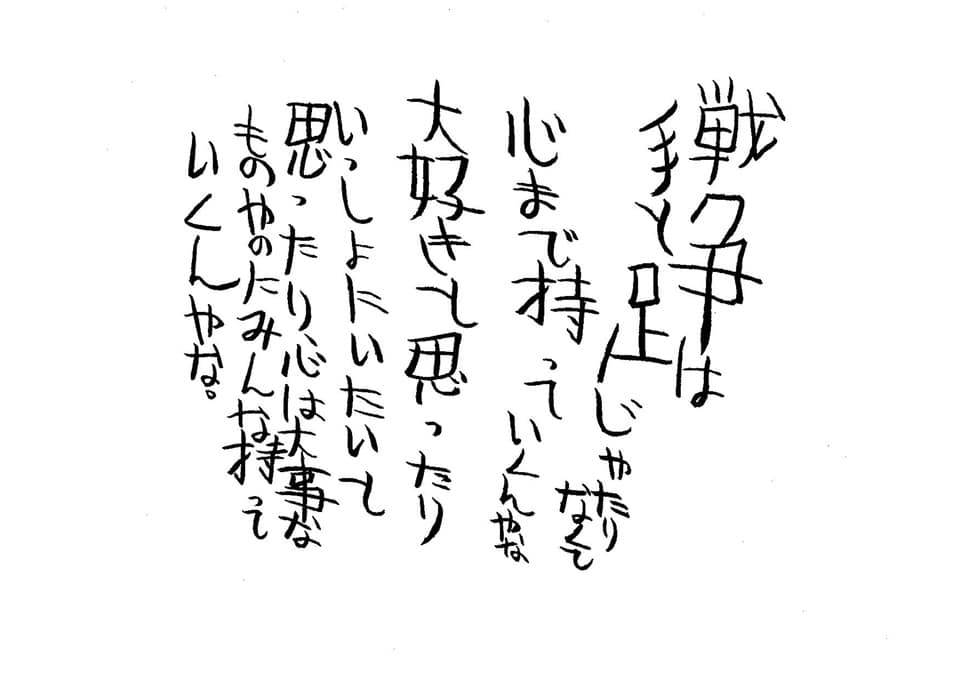 戦争は
手と足じゃたり
なくて
心まで持っていくんやな
大好きと思ったり
いっしょにいたいと
思ったり、心は大事な
ものやのにみんな持って
いくんやな。